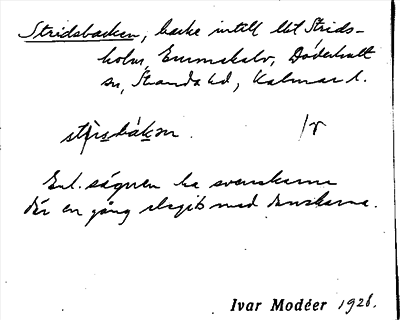 Stridsbacken, backe intill Ut Strids-
holm, Emmekalv, Döderhult
sn, Stranda hd, Kalmar l.
strisbákən. /v
Enl. sägnen ha svenskarna
där en gång slagits med danskarna.
Ivar Modéer 1926.